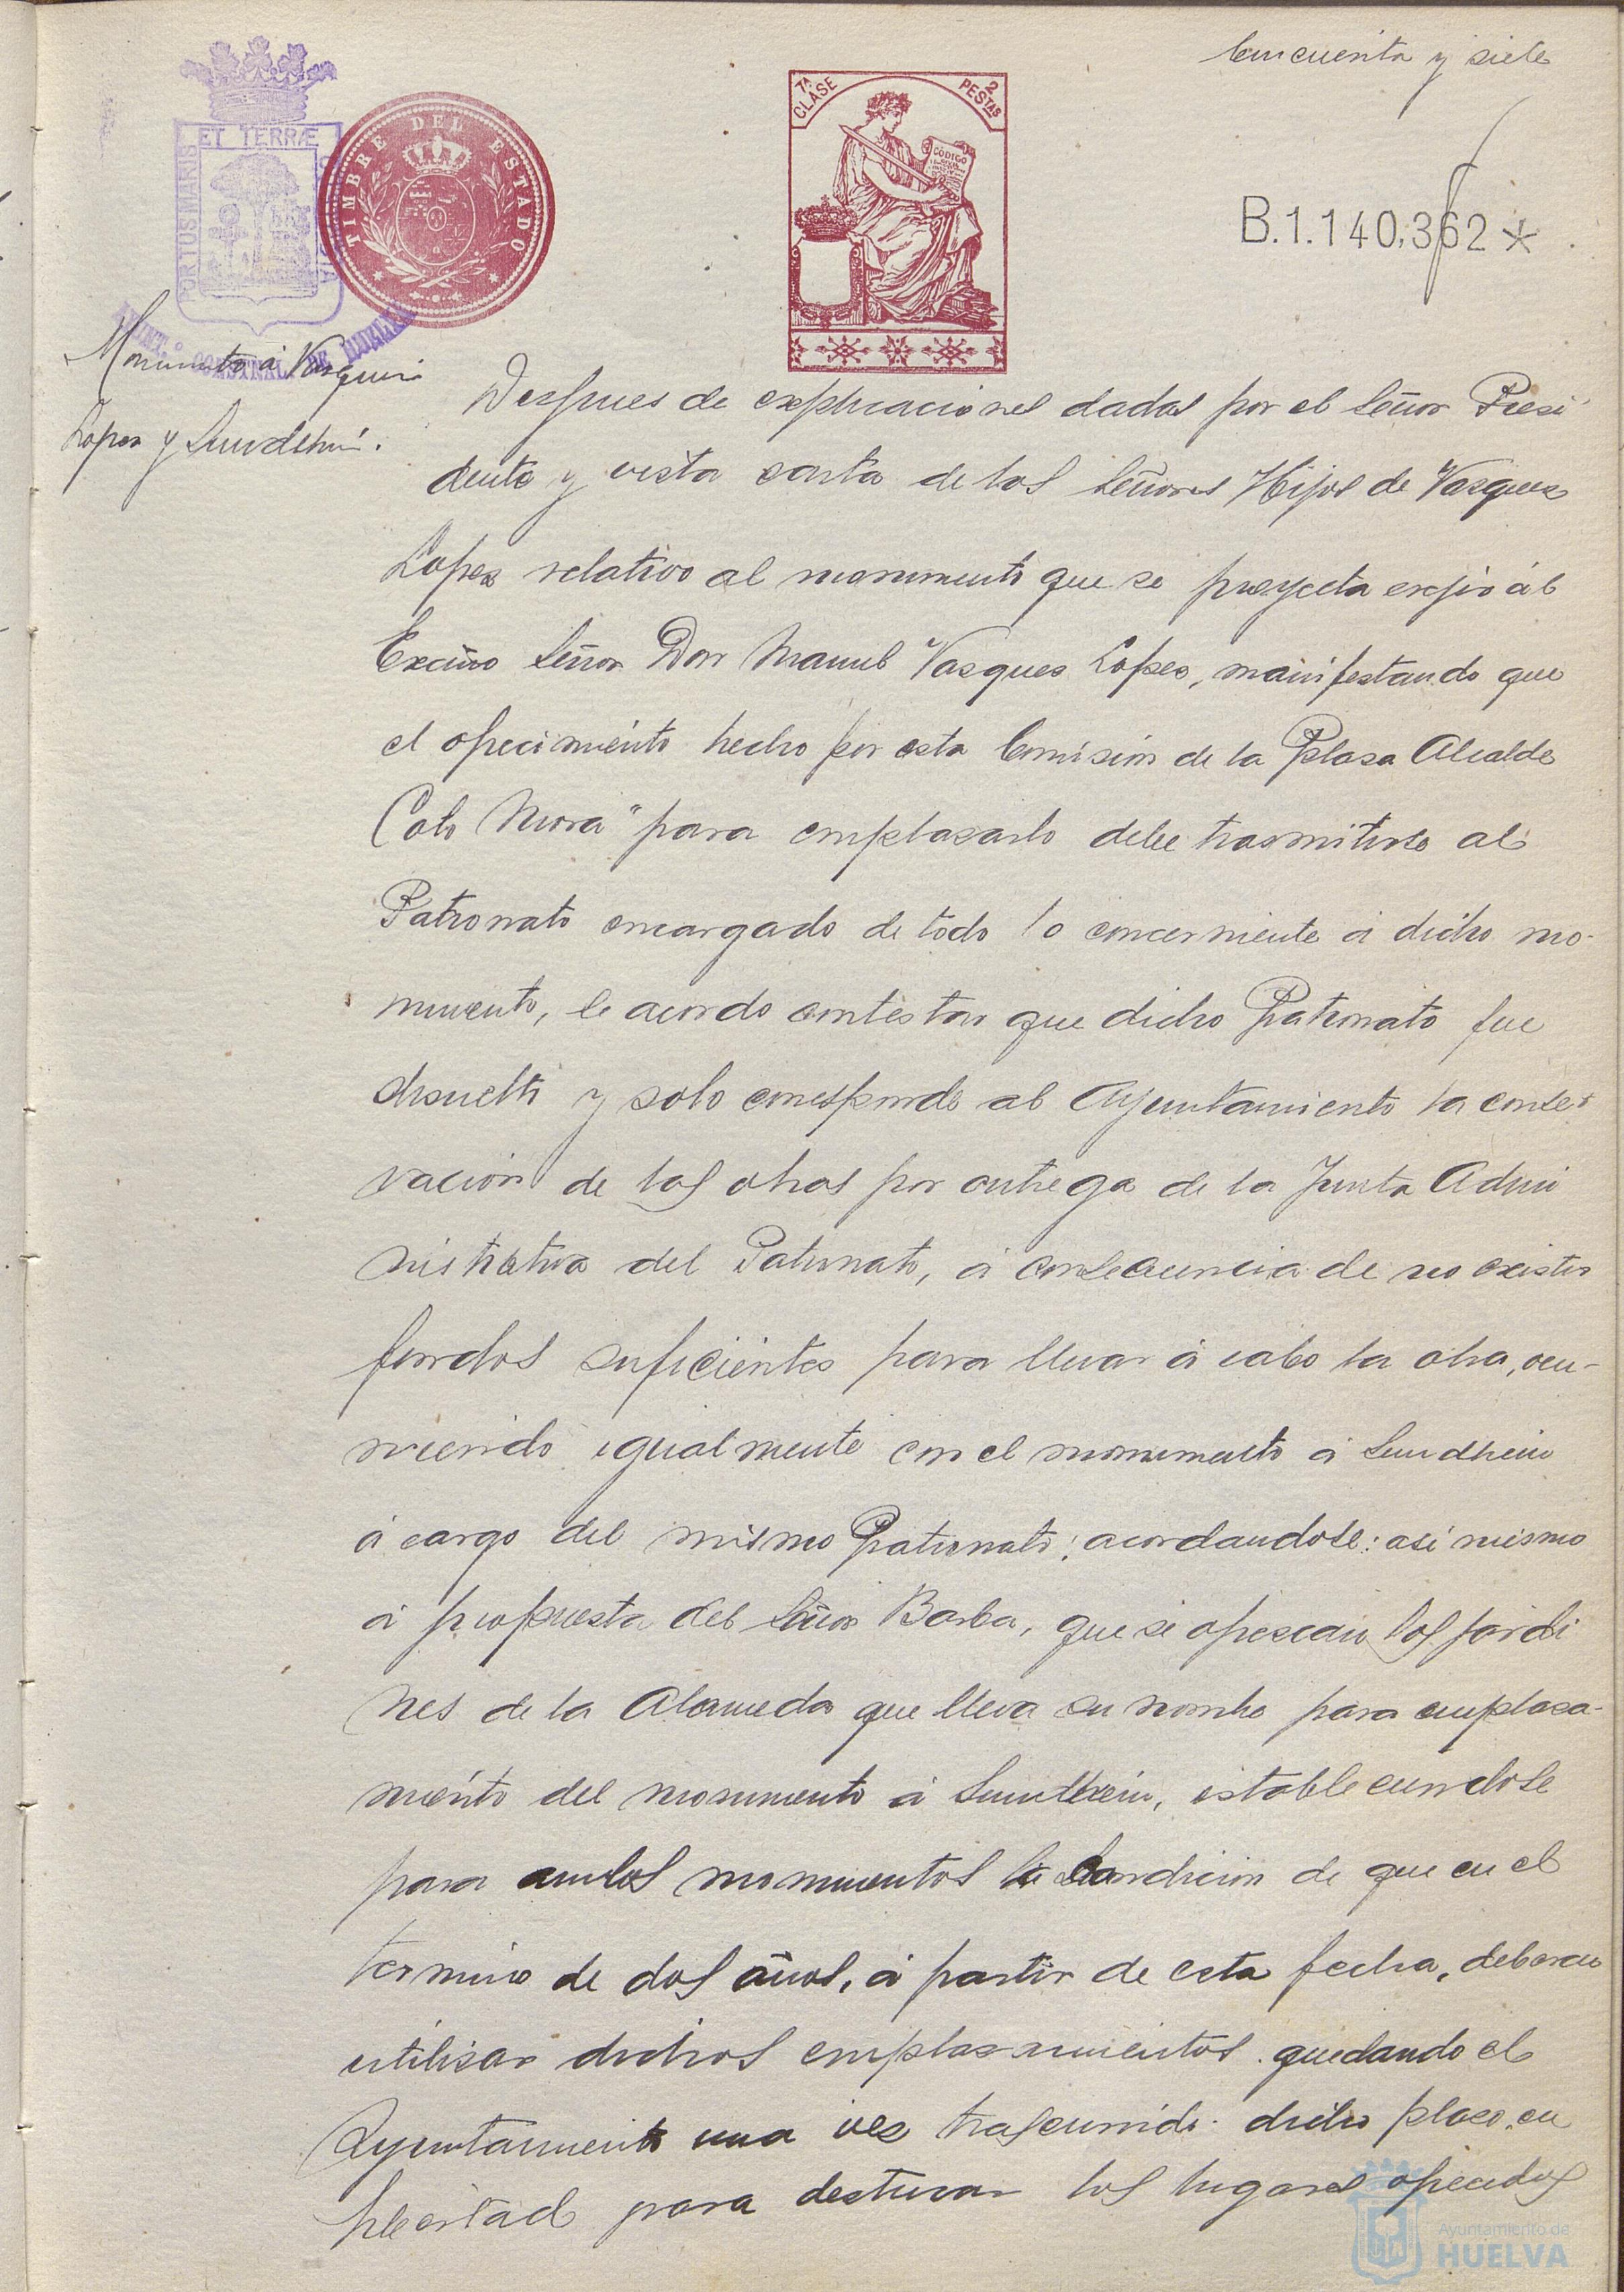 Cincuenta y siete
7ª CLASE
2 PESTAS
CÓDIGO
TIMBRE DEL ESTADO
PORTUS MARIS ET TERRÆ
B.1.140,362 *
Monumento á Vasquez
Lopez y Sundehin.
Despues de explicaciones dadas por el Señor Presi
dente y vista carta de los Señores Hijos de Vasquez
Lopez relativo al monumento que se proyecta erejir al
Excmo Señor Don Manuel Vasques Lopez, manifestando que
el ofrecimiento hecho por esta Comision de la Plasa Alcalde
Coto Mora" para emplasarlo debe trasmitirse al
Patronato encargado de todo lo concerniente á dicho mo-
numento, se acordo contestar que dicho Patronato fue
disuelto y solo corresponde al Ayuntamiento la conser
vacion de las obras por entrega de la Junta Admi
nistrativa del Patronato, á consecuencia de no existir
fondos suficientes para llevar á cabo la obra, ocu-
rriendo igualmente con el monumento á Sundhein
á cargo del mismo Patronato; acordandose: asi mismo
á propuesta del Señor Barba, que se ofrescan los jardi
nes de la Alameda que lleva su nombre para emplasa-
miento del monumento á Sundhein, estableciendose
para ambos monumentos la condicion de que en el
termino de dos años, á partir de esta fecha, deberan
utilisar dichos emplasamientos quedando el
Ayuntamiento una ves trascurrido dicho plaso, en
libertad para destinar los lugares ofrecidos
Ayuntamiento de
HUELVA